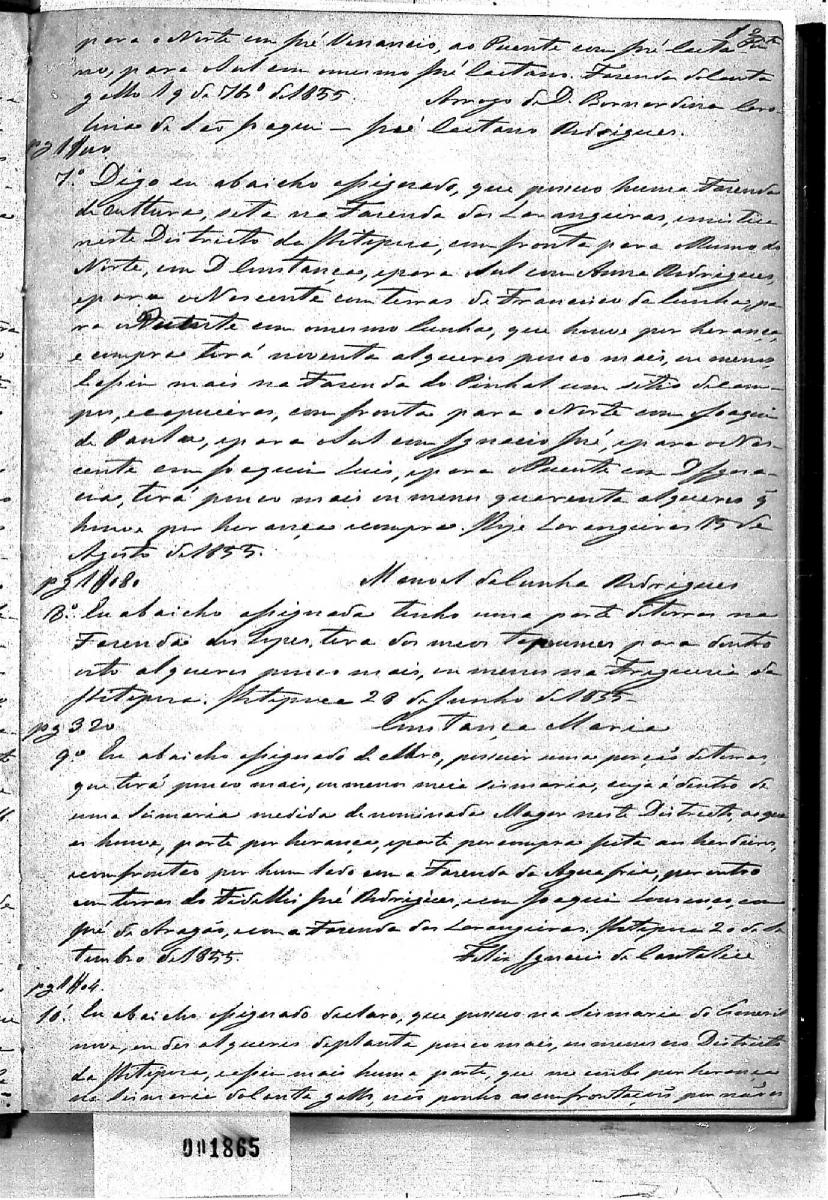 para o Norte em José Venancio, ao Puente com José Caeta
no, para o Sul com o mesmo José Caetano. Fazenda do Canta
gallo 19 de 7br.o de 1855. Arrogo de D. Bernardina Caro
lina de São Joaqui — José Caetano Rodrigues.
pg 1
7.o Digo eu abaicho assignado, que possuo huma Fazenda
de Cultura, seta na Fazenda das Larangeiras,
neste Districto da Ibitipoca, com fronta para o Rumo do
Norte, com D Constança, e para o Sul com Anna Rodrigues,
e para o Nascente com terras de Francisco da Cunha, pa
ra o Puente com o mesmo Cunha, que houve por herança,
e compra terá noventa alqueres pouco mais, ou menos,
e assim mais na Fazenda do Pinhal um sitio de cam
pos, e capueiras, com fronta para o Norte com Joaqui
de Paula, e para o Sul com Ignacio José, e para o Nas
cente com Joaquim Luis, e para o Puente com Igna
cio, terá pouco mais ou menos quarenta alqueres q
houve por herança e compra. Hoje Larangeiras 15 de
Agosto de 1855.
pg 1 080 Manoel da Cunha Rodrigues
8.o Eu abaicho assignada tenho uma parte de terras na
Fazenda dos Lopes, tera dos meos tapumes para dentro
oito alqueres pouco mais, ou menos na Freguesia da
Ibitipoca. Ibitipoca 28 de Junho de 1855
pg 320 Constança Maria
9.o Eu abaicho assignado declaro, possuir uma porção de terras
que terá pouco mais, ou menos meia sismaria, cuja é dentro de
uma sismaria medida denominada Magor neste Districto, as que
es houve, parte por herança, e parte por compra feita aos herdeiros,
e confrontes por hum lado com a Fazenda da Agua fria, por outro
com terras do Fidellis José Rodrigues, e com Joaqui Lourenço, com
José de Aragão, e com a Fazenda das Larangeiras. Ibitipoca 20 de Se
tembro de 1855. Felis Ignacio de Cantalice
pg 1 04
10.o Eu abaicho assignado declaro, que possuo na sismaria do
nove, ou des alqueres de planta pouco mais, ou menos no Districto
da Ibitipoca, e assim mais huma parte, que me coube por herança
na sismaria do Canta gallo, não ponho as confrontaçoẽs por não as
001865